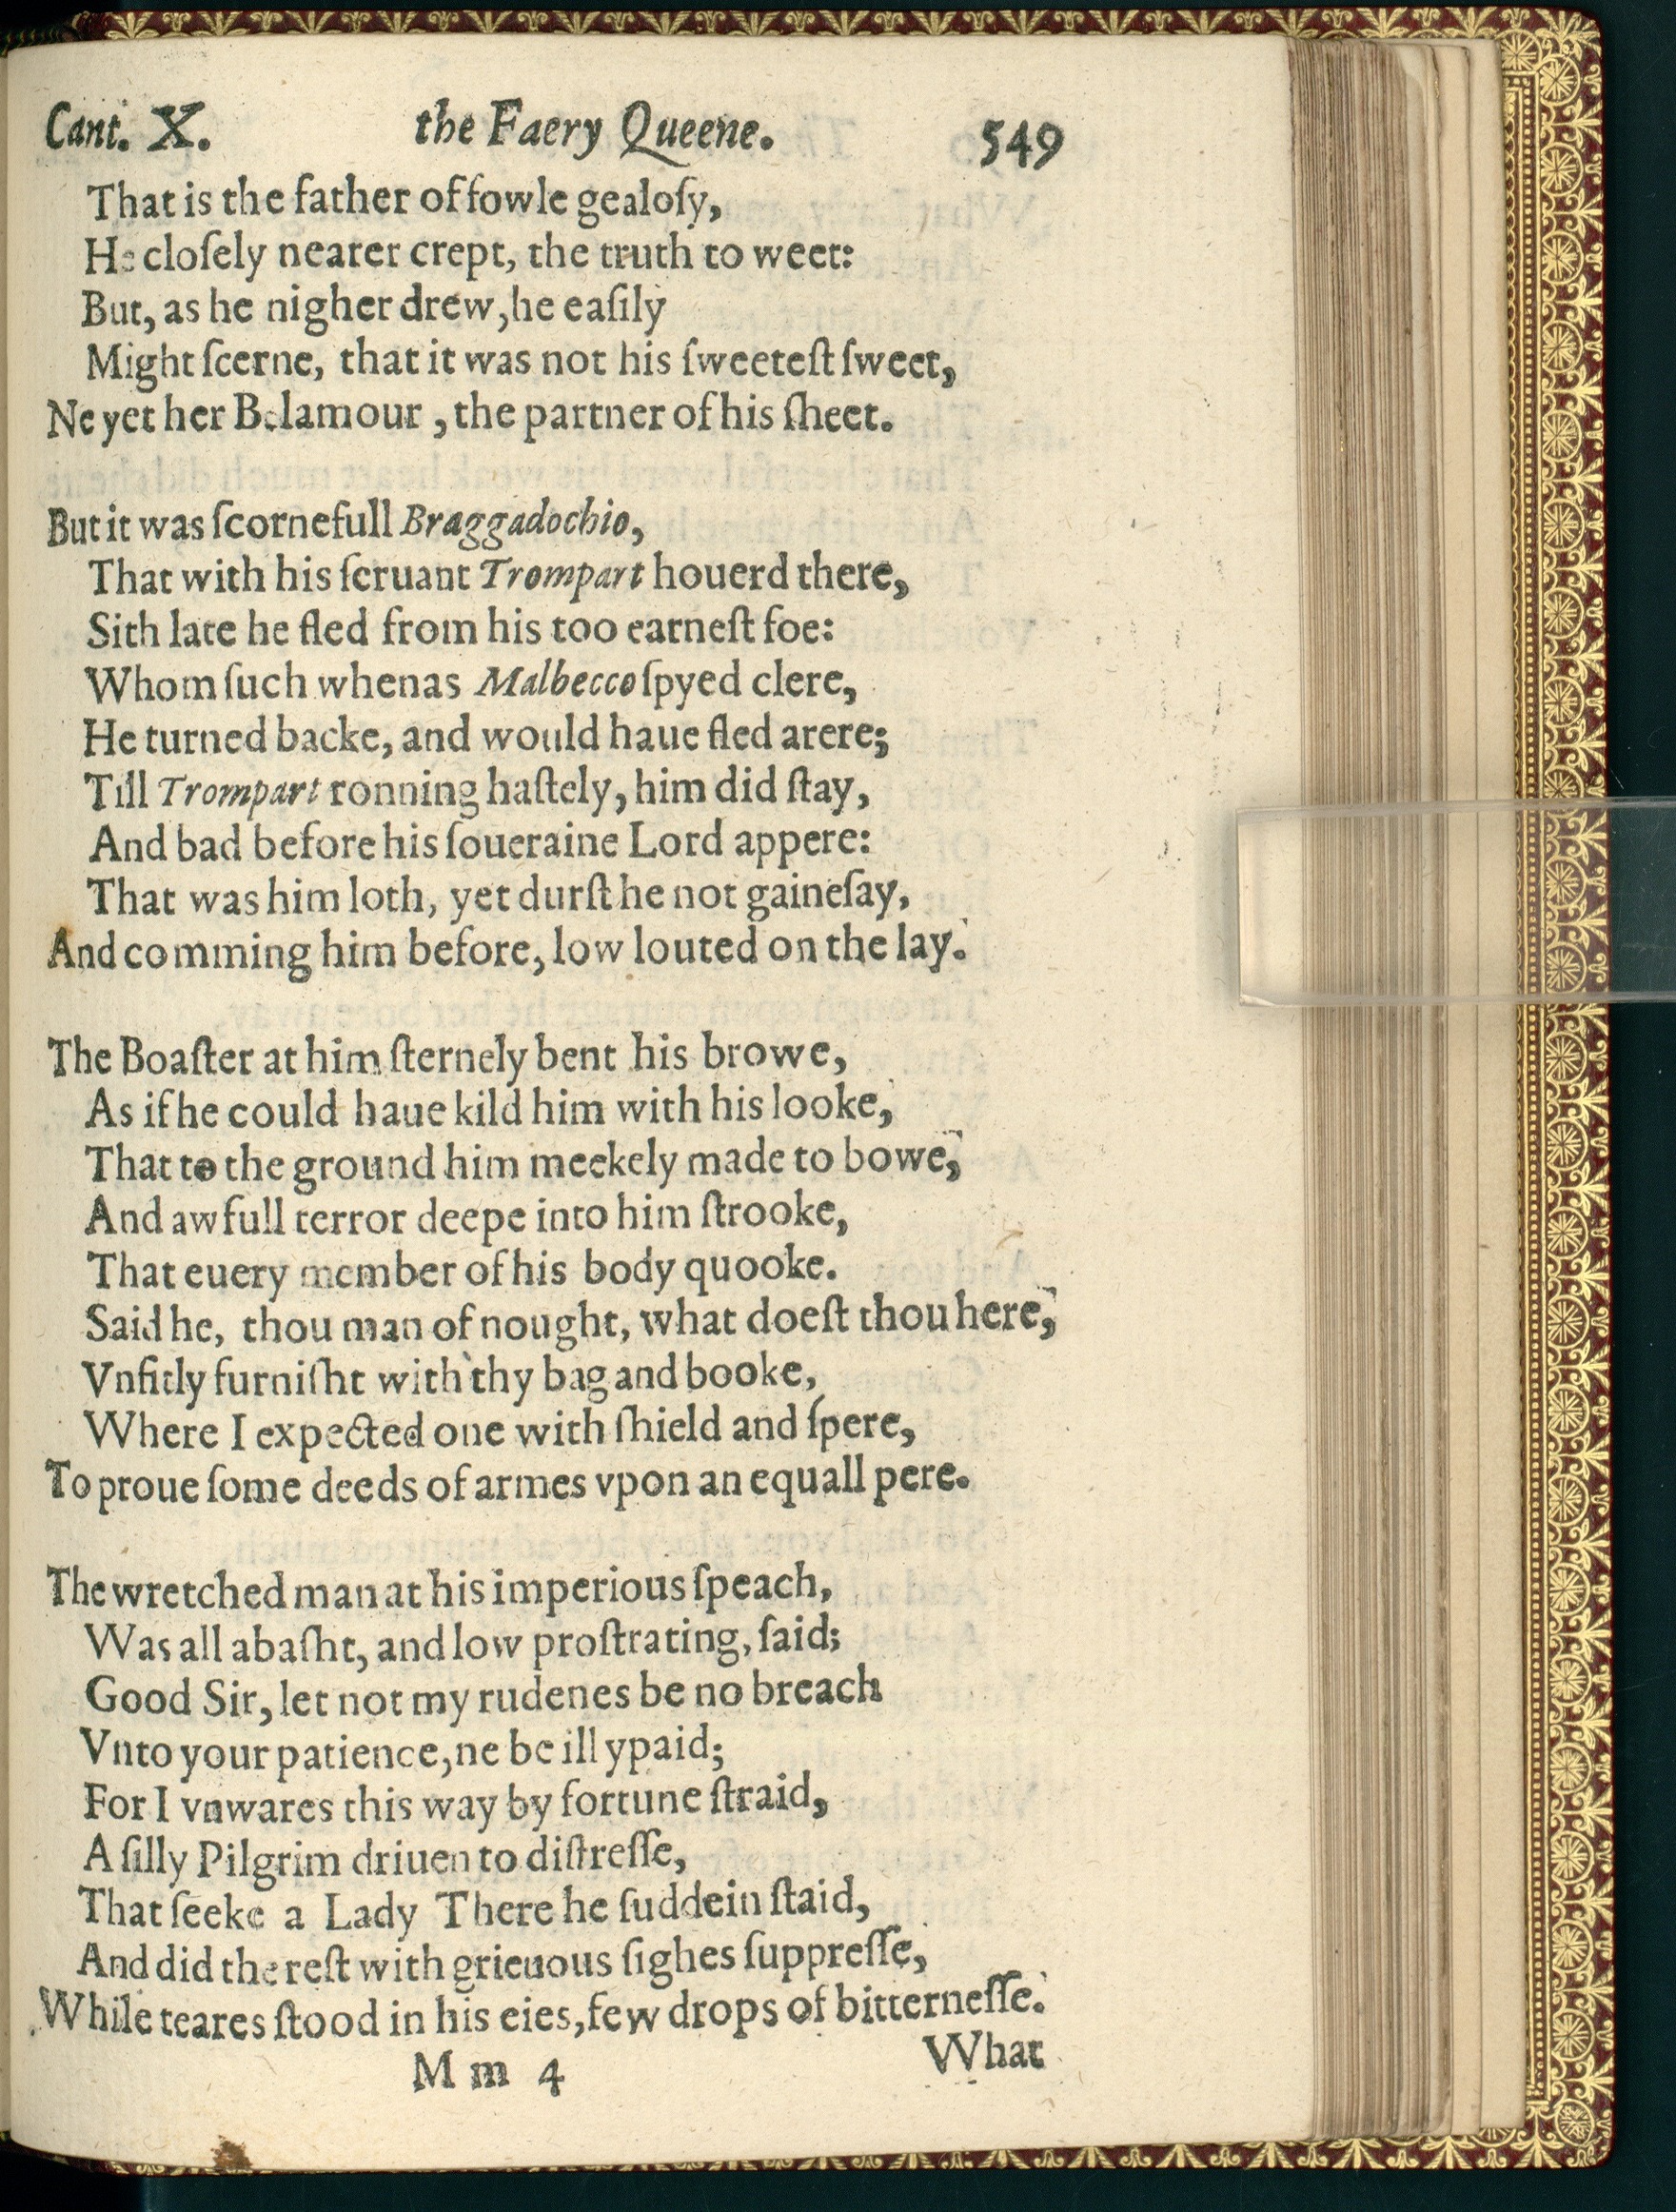 Cant. X. the Faery Queene. 549
That is the father of fowle gealoſy,
He cloſely nearer crept, the truth to weet:
But, as he nigher drew, he eaſily
Might ſcerne, that it was not his ſweeteſt ſweet,
Ne yet her Belamour, the partner of his ſheet.
But it was ſcornefull Braggadochio,
That with his ſeruant Trompart houerd there,
Sith late he fled from his too earneſt foe:
Whom ſuch whenas Malbecco ſpyed clere,
He turned backe, and would haue fled arere;
Till Trompart ronning haſtely, him did ſtay,
And bad before his ſoueraine Lord appere:
That was him loth, yet durſt he not gaineſay,
And comming him before, low louted on the lay.
The Boaſter at him ſternely bent his browe,
As if he could haue kild him with his looke,
That to the ground him meekely made to bowe,
And awfull terror deepe into him ſtrooke,
That euery member of his body quooke.
Said he, thou man of nought, what doeſt thou here,
Vnfitly furniſht with thy bag and booke,
Where I expected one with ſhield and ſpere,
To proue ſome deeds of armes vpon an equall pere.
The wretched man at his imperious ſpeach,
Was all abaſht, and low proſtrating, ſaid;
Good Sir, let not my rudenes be no breach
Vnto your patience, ne be ill ypaid;
For I vnwares this way by fortune ſtraid,
A ſilly Pilgrim driuen to diſtreſſe,
That ſeeke a Lady There he ſuddein ſtaid,
And did the reſt with grieuous ſighes ſuppreſſe,
While teares ſtood in his eies, few drops of bitterneſſe.
M m 4 What